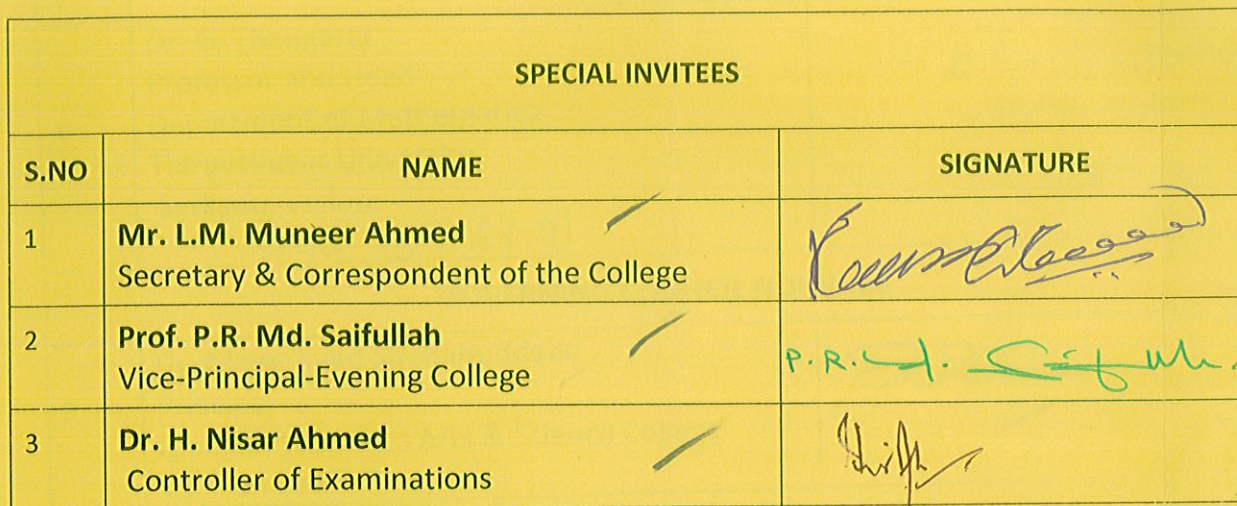 SPECIAL INVITEES
S.NO NAME SIGNATURE
1 Mr. L.M. Muneer Ahmed
Secretary & Correspondent of the College
2 Prof. P.R. Md. Saifullah
Vice-Principal-Evening College
P.R.
3 Dr. H. Nisar Ahmed
Controller of Examinations